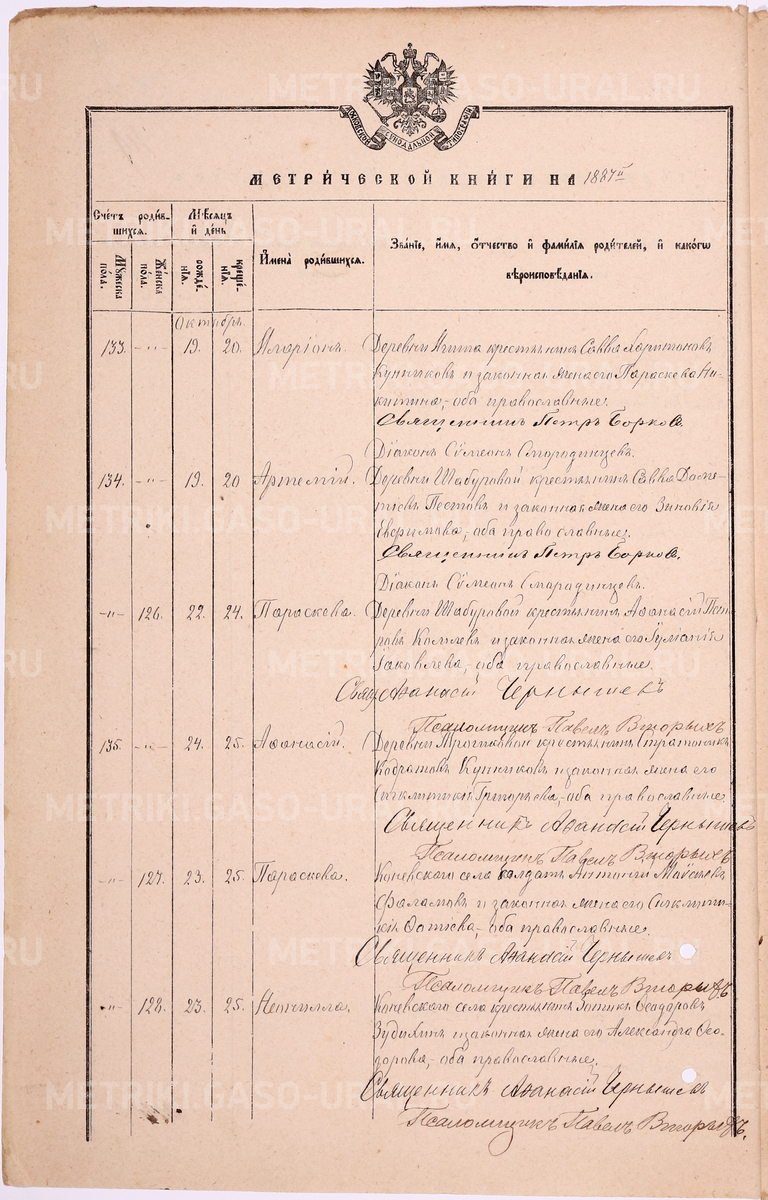 МОСКОВСКОЙ СѴНОДАЛЬНОЙ ТИПОГРАФІИ
МЕТРИЧЕСКОЙ КНИГИ НА 1887й
Счетъ родив-
шихся.
Мѣсяцъ
и день
Имена родившихся.
Званіе, имя, отчество и фамилія родителей, и какогѡ
вѣроисповѣданія.
Мужеска
пола.
Женска
пола.
рожде-
нія.
креще-
нія.
Октябрь.
133. -"- 19. 20. Иларіонъ. Деревни крестьянинъ Савва Харитоновъ
Кунниковъ и законная жена его Параскева Ни-
китина, оба православные.
Священникъ Петръ Борковъ.
Діаконъ Сѵмеонъ Смородинцевъ.
134. -"- 19. 20 Артемій. Деревни Шабуровой крестьянинъ Савва Доме-
тіевъ Пестовъ и законная жена его Зиновія
Евфимова, оба православные.
Священникъ Петръ Борковъ.
Діаконъ Сѵмеонъ Смородинцевъ.
-"- 126. 22. 24. Параскева. Деревни Шабуровой крестьянинъ Аѳанасій Пет-
ровъ и законная жена его Іуліанія
Іаковлева, оба православные.
Свящ. Аѳанасій Чернышевъ
Псаломщикъ Павелъ Вторыхъ
135. -"- 24. 25. Аѳанасій. Деревни крестьянинъ Стратоникъ
Кодратовъ Кунниковъ и законная жена его
Сигклитикія Григорьева, оба православные.
Священникъ Аѳанасій Чернышевъ
Псаломщикъ Павелъ Вторыхъ
-"- 127. 23. 25. Параскева. Коневского села солдатъ Антоній Моѵсеевъ
Фаламовъ и законная жена его Сигклити-
кія Фотіева, оба православные.
Священникъ Аѳанасій Чернышевъ
Псаломщикъ Павелъ Вторыхъ
-"- 128. 23. 25. Неонилла. Коневского села крестьянинъ Зотикъ Ѳеодоровъ
Зудихинъ и законная жена его Александра Ѳео-
дорова, оба православные.
Священникъ Аѳанасій Чернышевъ
Псаломщикъ Павелъ Вторыхъ.
METRIKI.GASO-URAL.RU